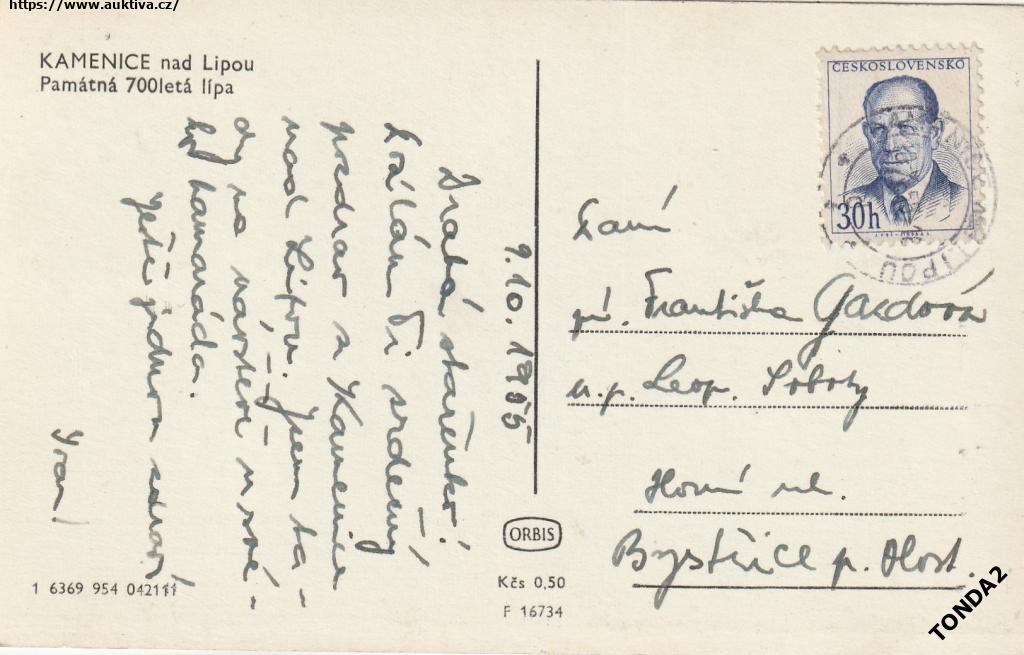 https://www.auktiva.cz/
KAMENICE nad Lipou
Památná 700letá lípa
9.10.1955
Drahá stařenko!
Zasílám Ti srdečný
pozdrav z Kamenice
nad Lipou. Jsem ta-
dy na návštěvě u své-
ho kamaráda.
Ještě jednou zdraví
Ivan!
ČESKOSLOVENSKO
30h
LIPOU
Paní
Františka Gazdová
u.p. Leop. Soboty
Horní ul.
Bystřice p. Host.
ORBIS
Kčs 0,50
F 16734
1 6369 954 042111
TONDA2